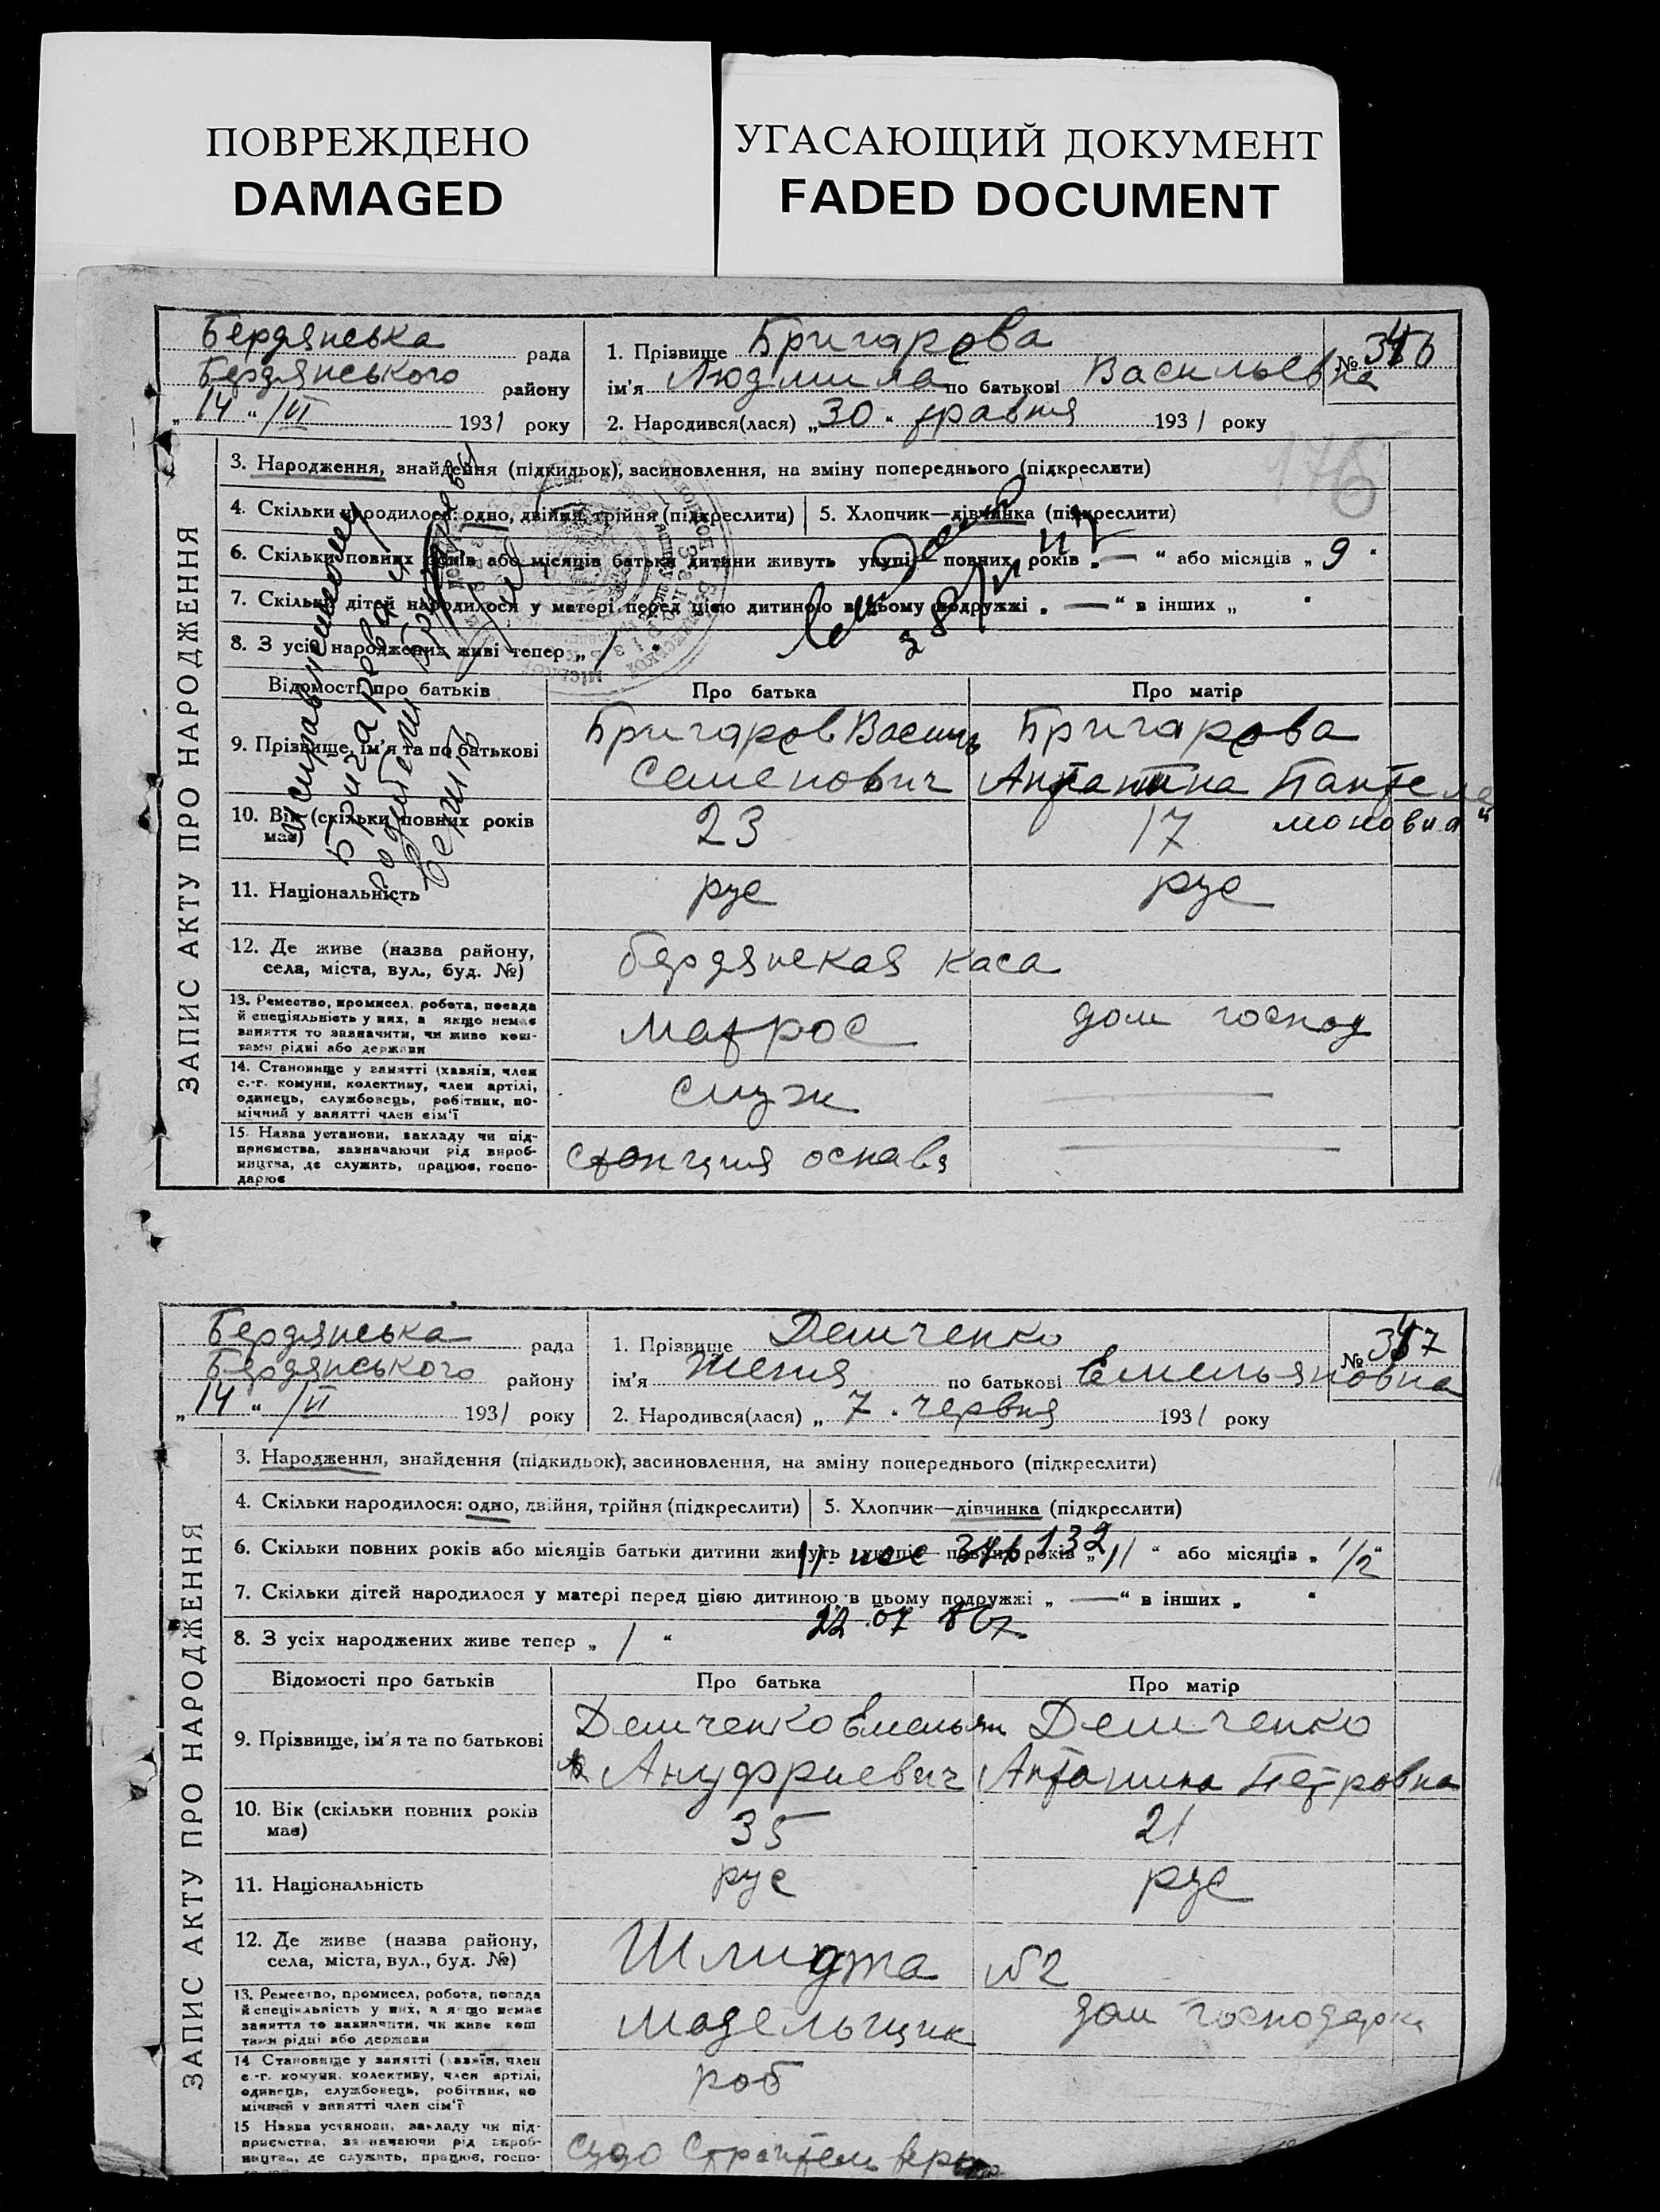 ПОВРЕЖДЕНО
DAMAGED
УГАСАЮЩИЙ ДОКУМЕНТ
FADED DOCUMENT
Бердянська рада
Бердянського району
„14“ /VI 1931 року
1. Прізвище Бригарова
ім'я Людмила по батькові Васильевна
2. Народився(лася) „30“ травня 1931 року
№ 346
176
ЗАПИС АКТУ ПРО НАРОДЖЕННЯ
3. Народження, знайдення (підкидьок), засиновлення, на зміну попереднього (підкреслити)
4. Скільки народилося: одно, двійня, трійня (підкреслити) 5. Хлопчик—дівчинка (підкреслити)
6. Скільки повних років або місяців батьки дитини живуть укупі— повних років „—“ або місяців „9“
7. Скільки дітей народилося у матері перед цією дитиною в цьому подружжі „—“ в інших „ “
8. З усіх народжених живі тепер „1“
Відомості про батьків Про батька Про матір
9. Прізвище, ім'я та по батькові
Бригаров Василь
Семенович
Бригарова
Антанина Пантелей
моновна
10. Вік (скільки повних років має) 23 17
11. Національність рус рус
12. Де живе (назва району, села, міста, вул., буд. №) бердянская каса
13. Ремество, промисел, робота, посада й специяльність у них, а якщо немає заняття то зазначити, чи живе коштами рідні або держави матрос дом господ
14. Становище у занятті (хазяїн, член с.-г. комуни, колективу, член артілі, одинець, службовець, робітник, помічний у занятті член сім'ї служ —
15. Назва установи, закладу чи підприємства, зазначаючи рід виробництва, де служить, працює, господарює станция —
Бердянська рада
Бердянського району
„14“ /VI 1931 року
1. Прізвище Демченко
ім'я Женя по батькові Емельяновна
2. Народився(лася) „7“ червня 1931 року
№ 347
ЗАПИС АКТУ ПРО НАРОДЖЕННЯ
3. Народження, знайдення (підкидьок), засиновлення, на зміну попереднього (підкреслити)
4. Скільки народилося: одно, двійня, трійня (підкреслити) 5. Хлопчик—дівчинка (підкреслити)
6. Скільки повних років або місяців батьки дитини живуть укупі— повних років „11“ або місяців „1/2“
7. Скільки дітей народилося у матері перед цією дитиною в цьому подружжі „—“ в інших „ “
22.07
8. З усіх народжених живе тепер „1“
Відомості про батьків Про батька Про матір
9. Прізвище, ім'я та по батькові
Демченко Емельян
Ануфриевич
Демченко
Антонина Петровна
10. Вік (скільки повних років має) 35 21
11. Національність рус рус
12. Де живе (назва району, села, міста, вул., буд. №) №2
13. Ремество, промисел, робота, посада й специяльність у них, а якщо немає заняття то зазначити, чи живе коштами рідні або держави модельщик дом господарка
14. Становище у занятті (хазяїн, член с.-г. комуни, колективу, член артілі, одинець, службовець, робітник, помічний у занятті член сім'ї роб
15. Назва установи, закладу чи підприємства, зазначаючи рід виробництва, де служить, працює, господарює